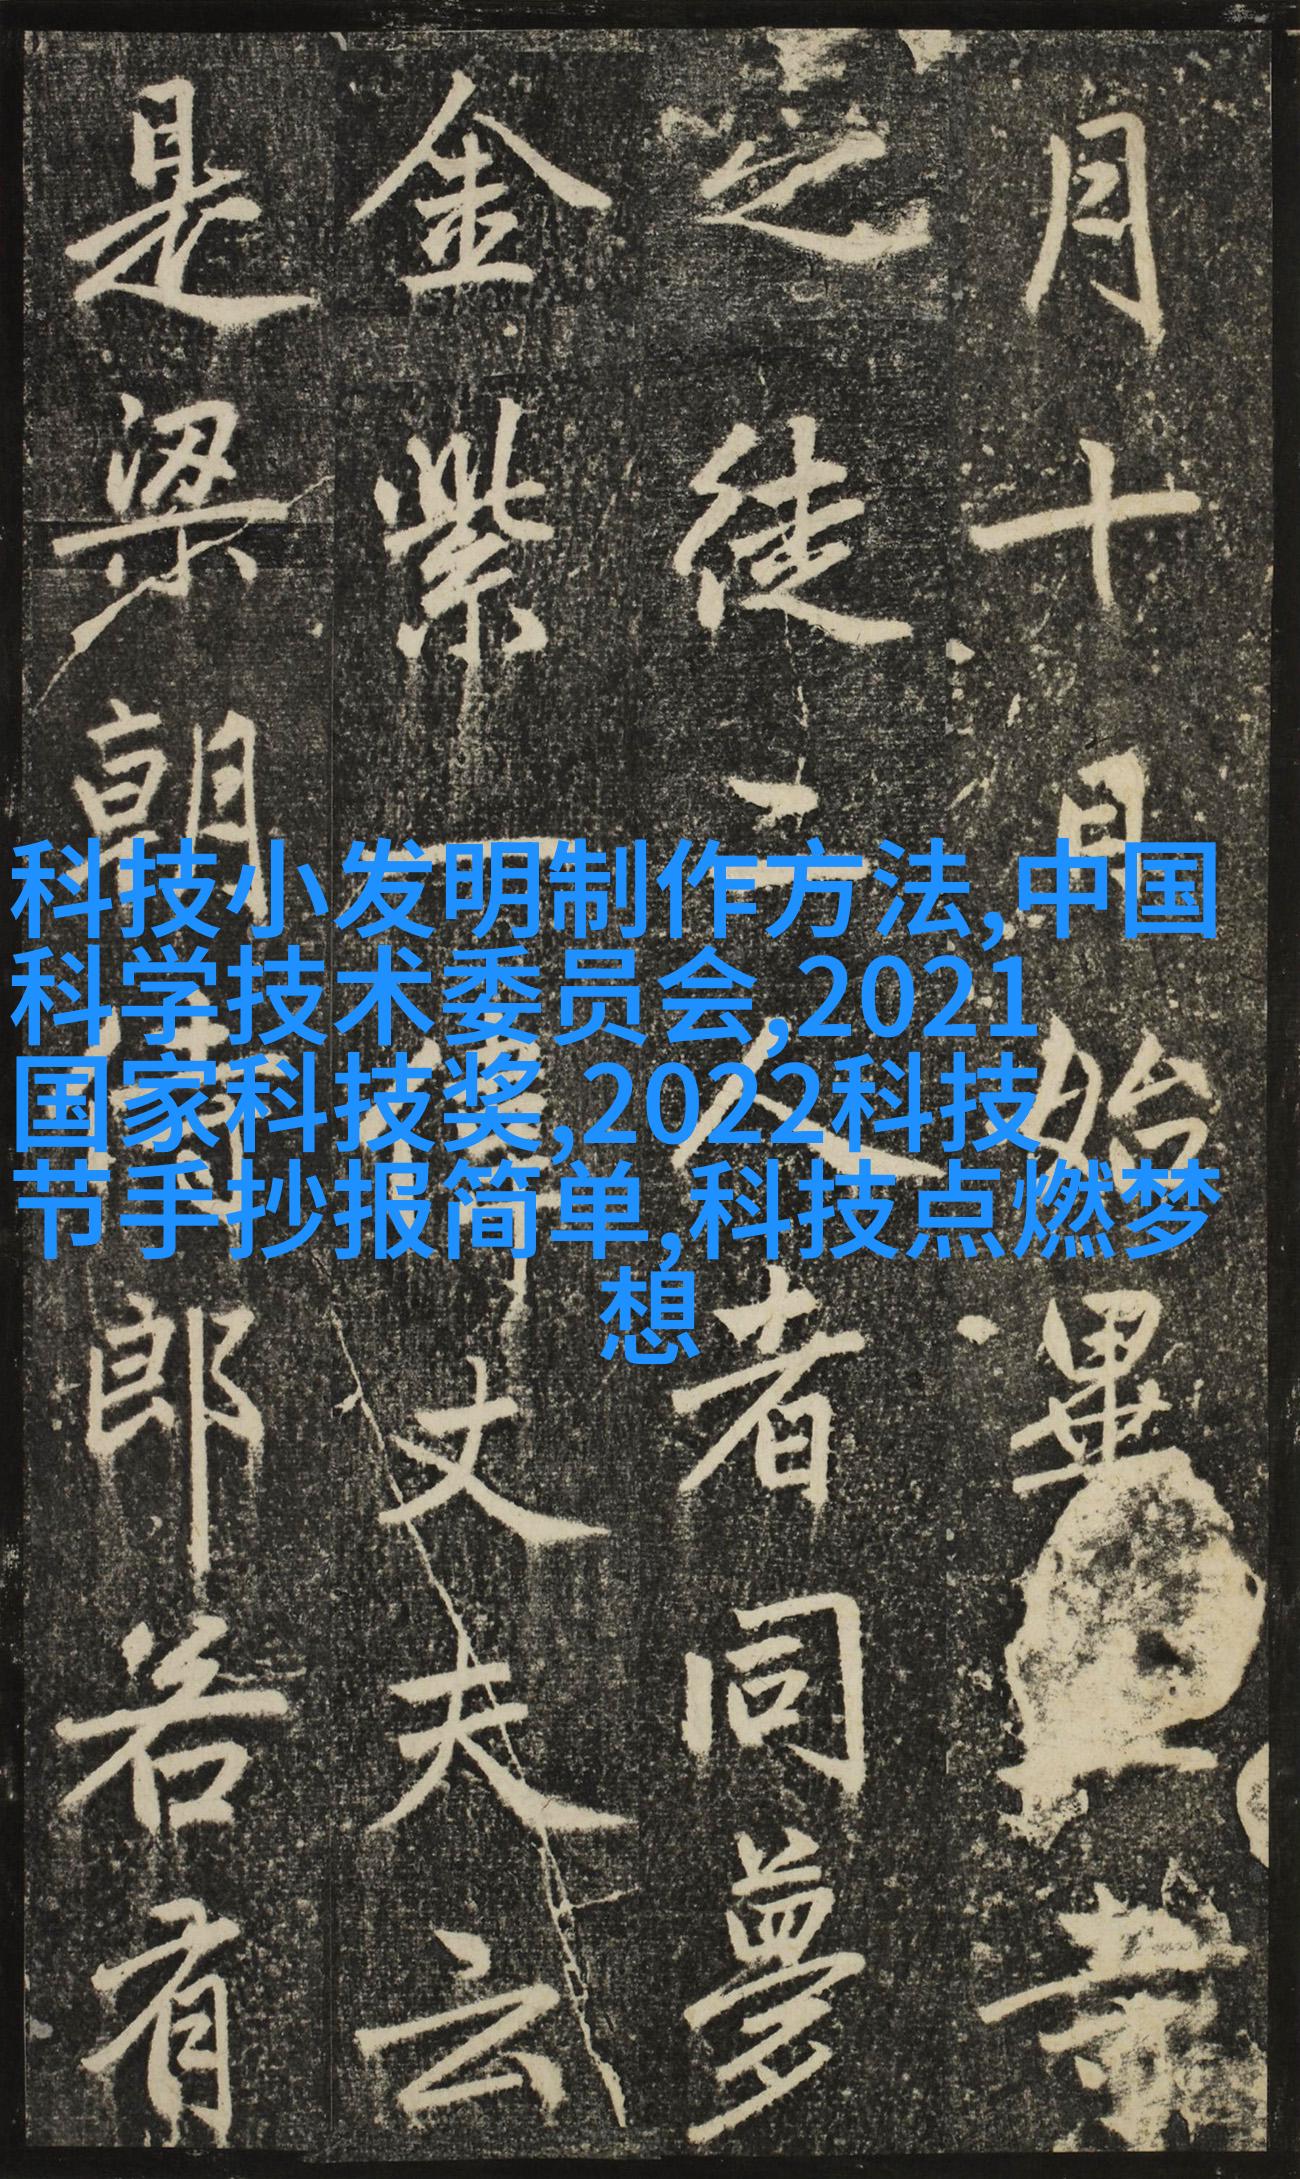 月十日始畢
之徒二人者同夢
金紫一偉丈夫云
是梁朝侍郎若有
科技小发明制作方法,中国
科学技术委员会,2021
国家科技奖,2022科技
节手抄报简单,科技点燃梦
想